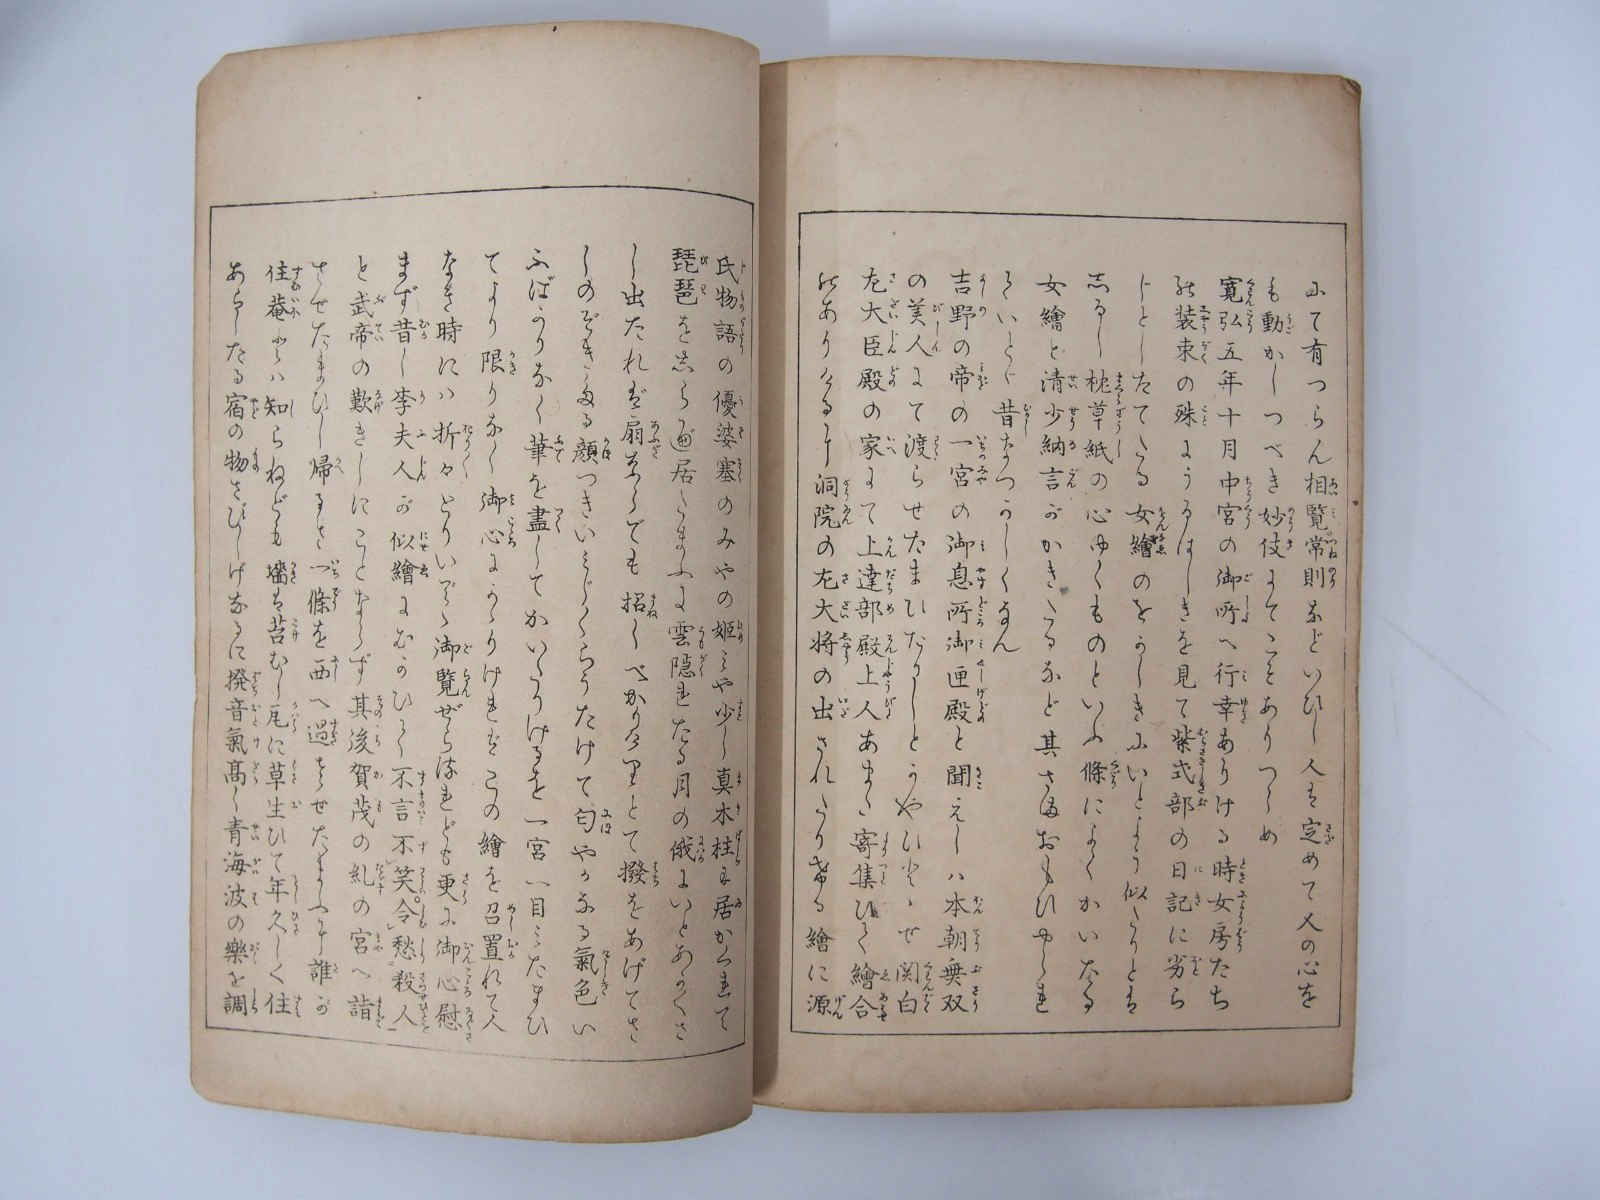 にて有つらん相覧常則などいひし人は定めて人の心を
も動かしつべき妙伎にてこそありつらめ
寛弘五年十月中宮の御所へ行幸ありける時女房たち
の装束の殊にうるはしきを見て紫式部の日記に劣ら
じとしたてたる女繪のをかしきにいとよう似たりとは
志るし枕草紙の心ゆくものといふ條によくかいたる
女繪と清少納言がかきたるなど其さまおもひやられ
ていとゞ昔なつかしくなん
吉野の帝の一宮の御息所御匣殿と聞えしハ本朝無双
の美人にて渡らせたまひたりしとかやひとゝせ関白
左大臣殿の家にて上達部殿上人あまた寄集ひて繪合
のありけるに洞院の左大将の出されたりける繪に源
氏物語の優婆塞のみやの姫ミや少し真木柱に居かくれて
琵琶を志らべ居たまふに雲隠れたる月の俄にいとあかくさ
し出たれば扇ならでも招くべかりけりとて撥をあげてさ
しのぞきたる顔つきいミじくらうたけて匂やかなる氣色い
ふばかりなく筆を盡してかいたりけるを一宮一目ミたまひ
てより限りなく御心にかゝりければこの繪を召置れて人
なき時にハ折々とりいでゝ御覧ぜらるれども更に御心慰
まず昔し李夫人が似繪にむかひて不言不笑令愁殺人
と武帝の歎きしにことならず其後賀茂の糺の宮へ詣
させたまひし帰るさ一條を西へ過させたまふに誰が
住菴とハ知らねども墻は苔むし瓦に草生ひて年久しく住
あらしたる宿の物さびしげなるに撥音氣高く青海波の樂を調